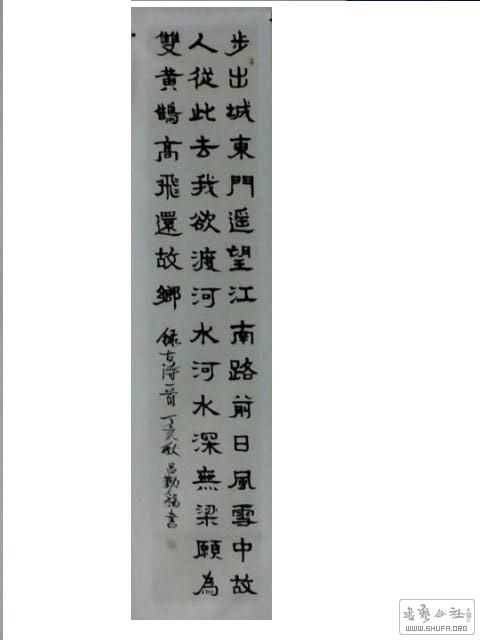 步出城東門遥望江南路前日風雪中故
人從此去我欲渡河水河水深無梁願為
雙黄鵠高飛還故鄉
録古詩一首 丁亥秋 吕勤福書
書藝公社
WWW.SHUFA.ORG